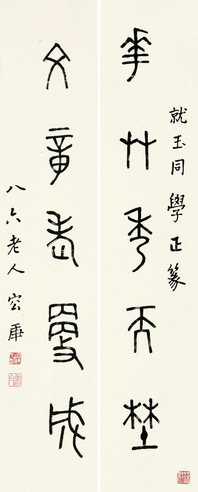 就玉同學正篆
華艸秀天埜
文章老更成
八六老人容庚